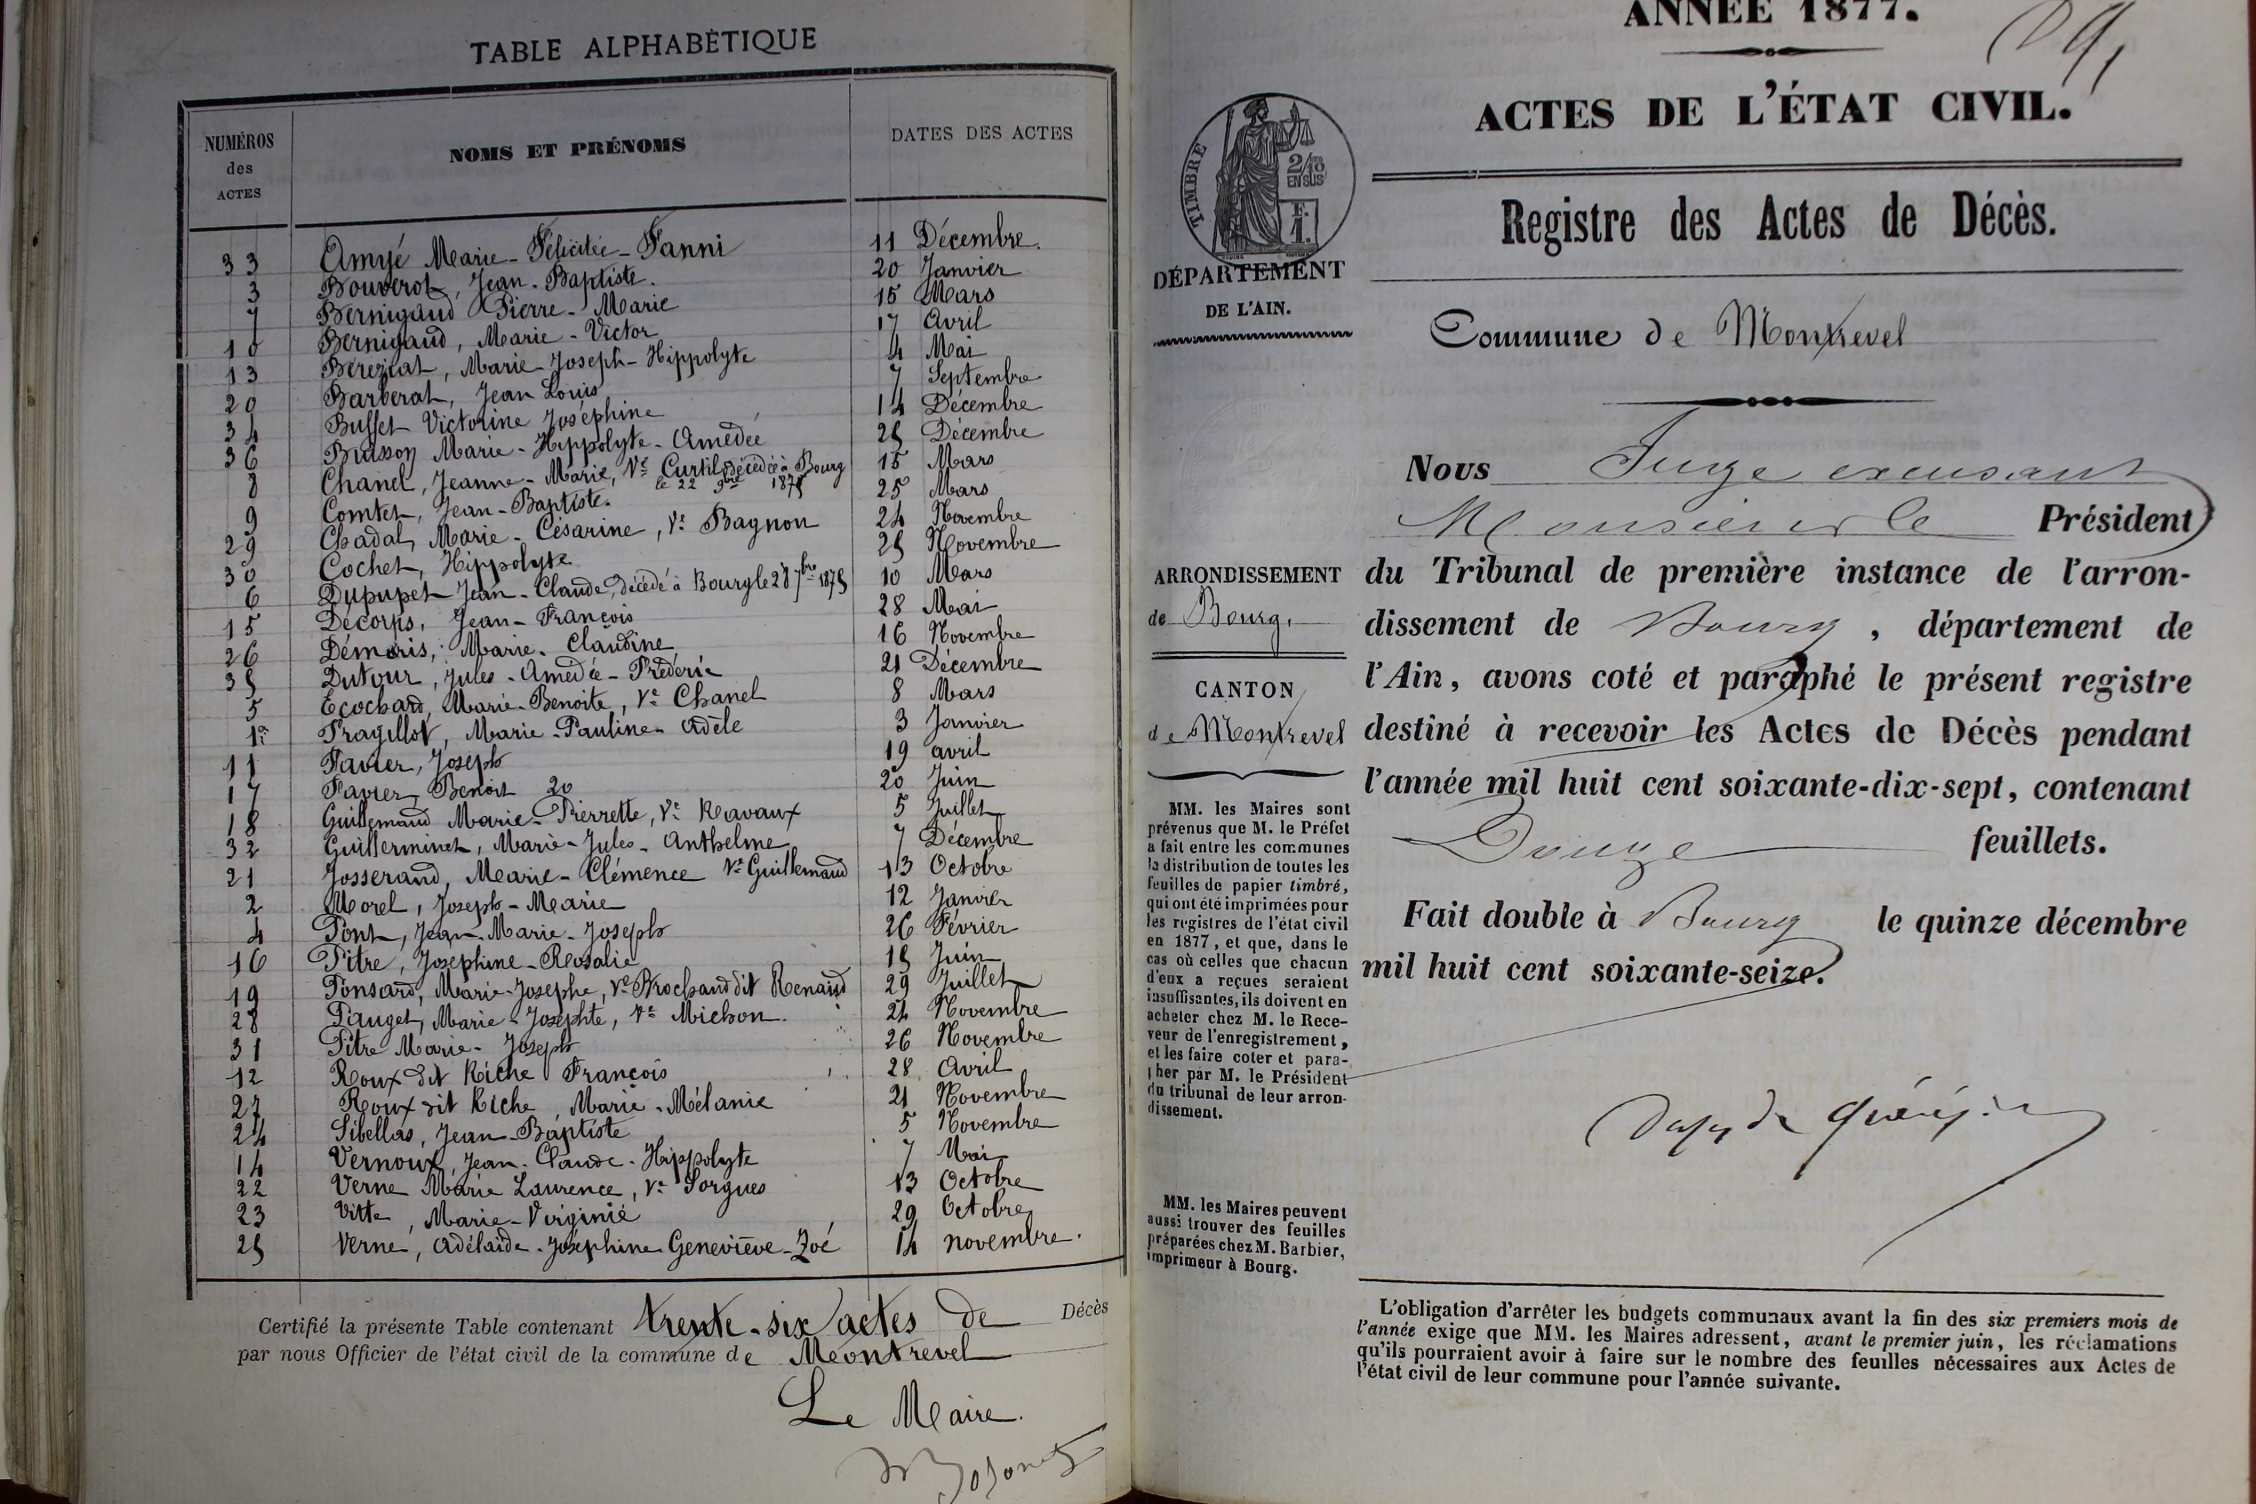 TABLE ALPHABÉTIQUE
NUMÉROS des ACTES NOMS ET PRÉNOMS DATES DES ACTES
33 Amyé Marie-Félicitée-Fanni 11 Décembre.
3 Bouverot, Jean-Baptiste. 20 Janvier
7 Bernigaud Pierre-Marie 15 Mars
10 Bernigaud, Marie-Victor 17 Avril
13 Bereziat, Marie-Joseph-Hippolyte 4 Mai
20 Barberat, Jean Louis 7 Septembre
34 Buffet Victorine Joséphine 14 Décembre
36 Buisson Marie-Hippolyte-Amédée 25 Décembre
8 Chanel, Jeanne-Marie, Ve Curtil, décédée à Bourg 15 Mars
le 22 9bre 1875
9 Comtet, Jean-Baptiste. 25 Mars
29 Chadal, Marie-Césarine, Ve Bagnon 24 Novembre
30 Cochet, Hippolyte 25 Novembre
6 Dupupet Jean-Claude, décédé à Bourg le 28 7bre 1875 10 Mars
15 Décorps, Jean-François 28 Mai
26 Démaris, Marie-Claudine 16 Novembre
35 Dutour, Jules-Amédée-Fréderic 21 Décembre
5 Ecochard, Marie-Benoite, Ve Chanel 8 Mars
1er Fragillot, Marie-Pauline-Adèle 3 Janvier
11 Favier, Joseph 19 avril
17 Favier, Benoit 20 Juin
18 Guillemaud Marie-Pierrette, Ve Ravaux 5 Juillet
32 Guillerminet, Marie-Jules-Anthelme 7 Décembre
21 Josserand, Marie-Clémence Ve Guillemaud 13 Octobre
2 Morel, Joseph-Marie 12 Janvier
4 Pont, Jean-Marie-Joseph 26 Février
16 Pitre, Joséphine-Rosalie 15 Juin
19 Ponsard, Marie-Josephe, Ve Brochaud dit Renaud 29 Juillet
28 Pauget, Marie-Josephte, Ve Michon. 24 Novembre
31 Pitre Marie-Joseph 26 Novembre
12 Roux dit Riche François 28 Avril
27 Roux dit Riche, Marie-Mélanie 21 Novembre
24 Sibellas, Jean-Baptiste 5 Novembre
14 Vernoux, Jean-Claude-Hippolyte 7 Mai
22 Verne Marie Laurence, Ve Sorgues 13 Octobre
23 Vitte, Marie-Virginie 29 Octobre
25 Verne, Adélaïde-Joséphine-Geneviève-Zoé 14 novembre.
Certifié la présente Table contenant trente-six actes de Décès
par nous Officier de l'état civil de la commune de Montrevel
Le Maire.
ANNÉE 1877.
ACTES DE L'ÉTAT CIVIL.
TIMBRE
2/10 EN SUS
Registre des Actes de Décès.
DÉPARTEMENT
DE L'AIN.
Commune de Montrevel
Nous Juge excusant
Monsieur le Président
ARRONDISSEMENT
de Bourg.
CANTON
de Montrevel
du Tribunal de première instance de l'arron-
dissement de Bourg, département de
l'Ain, avons coté et paraphé le présent registre
destiné à recevoir les Actes de Décès pendant
l'année mil huit cent soixante-dix-sept, contenant
Douze feuillets.
Fait double à Bourg le quinze décembre
mil huit cent soixante-seize.
MM. les Maires sont
prévenus que M. le Préfet
a fait entre les communes
la distribution de toutes les
feuilles de papier timbré,
qui ont été imprimées pour
les registres de l'état civil
en 1877, et que, dans le
cas où celles que chacun
d'eux a reçues seraient
insuffisantes, ils doivent en
acheter chez M. le Rece-
veur de l'enregistrement,
et les faire coter et para-
pher par M. le Président
du tribunal de leur arron-
dissement.
MM. les Maires peuvent
aussi trouver des feuilles
préparées chez M. Barbier,
imprimeur à Bourg.
L'obligation d'arrêter les budgets communaux avant la fin des six premiers mois de
l'année exige que MM. les Maires adressent, avant le premier juin, les réclamations
qu'ils pourraient avoir à faire sur le nombre des feuilles nécessaires aux Actes de
l'état civil de leur commune pour l'année suivante.